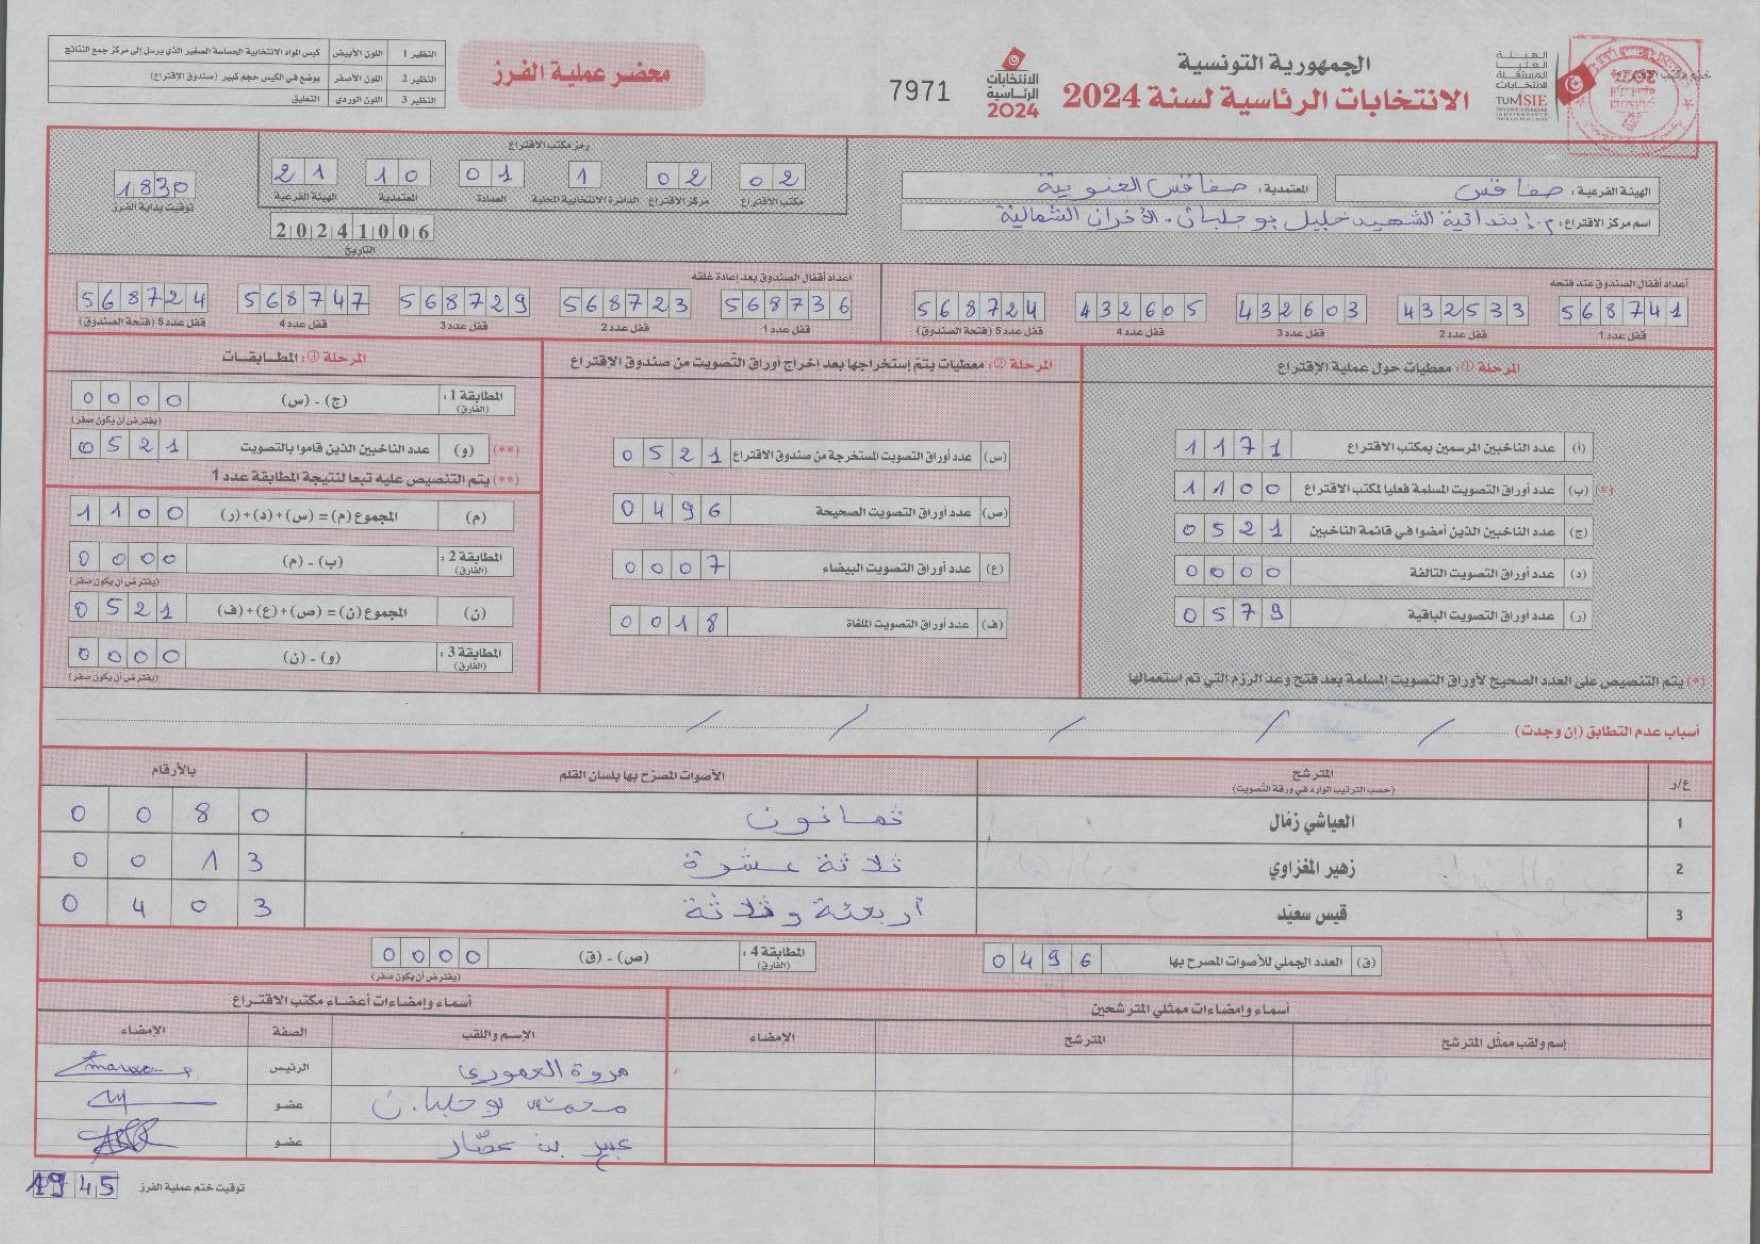 الجمهورية التونسية
الانتخابات الرئاسية لسنة 2024
الهيئة العليا المستقلة للانتخابات
TUNISIE
الانتخابات الرئاسية 2024
7971
محضر عملية الفرز
النظير 1 اللون الأبيض كيس المواد الانتخابية الحساسة الصغير الذي يرسل إلى مركز جمع النتائج
النظير 2 اللون الأصفر يوضع في الكيس حجم كبير (صندوق الاقتراع)
النظير 3 اللون الوردي التعليق
الهيئة الفرعية: صفاقس المعتمدية: صفاقس الجنوبية
اسم مركز الاقتراع: م. ابتدائية الشهيد خليل بوحلبان. الأفران الشمالية
رمز مكتب الاقتراع
02 02 1 01 10 21
مكتب الاقتراع مركز الاقتراع الدائرة الانتخابية المحلية العمادة المعتمدية الهيئة الفرعية
20241006
التاريخ
1830
توقيت بداية الفرز
أعداد أقفال الصندوق عند فتحه
568741 432533 432603 432605 568724
قفل عدد 1 قفل عدد 2 قفل عدد 3 قفل عدد 4 قفل عدد 5 (فتحة الصندوق)
أعداد أقفال الصندوق بعد إعادة غلقه
568736 568723 568729 568747 568724
قفل عدد 1 قفل عدد 2 قفل عدد 3 قفل عدد 4 قفل عدد 5 (فتحة الصندوق)
المرحلة ①: معطيات حول عملية الإقتراع
(أ) عدد الناخبين المرسمين بمكتب الاقتراع 1171
(*) (ب) عدد أوراق التصويت المسلمة فعليا لمكتب الاقتراع 1100
(ج) عدد الناخبين الذين أمضوا في قائمة الناخبين 0521
(د) عدد أوراق التصويت التالفة 0000
(ر) عدد أوراق التصويت الباقية 0579
(*) يتم التنصيص على العدد الصحيح لأوراق التصويت المسلمة بعد فتح وعد الرزم التي تم استعمالها
المرحلة ②: معطيات يتم إستخراجها بعد إخراج أوراق التصويت من صندوق الإقتراع
(س) عدد أوراق التصويت المستخرجة من صندوق الاقتراع 0521
(ص) عدد أوراق التصويت الصحيحة 0496
(ع) عدد أوراق التصويت البيضاء 0007
(ف) عدد أوراق التصويت الملغاة 0018
المرحلة ③: المطابقات
المطابقة 1: (الفارق) (ج) - (س) 0000
(يفترض أن يكون صفر)
(**) (و) عدد الناخبين الذين قاموا بالتصويت 0521
(**) يتم التنصيص عليه تبعا لنتيجة المطابقة عدد 1
(م) المجموع (م) = (س)+(د)+(ر) 1100
المطابقة 2: (الفارق) (ب) - (م) 0000
(يفترض أن يكون صفر)
(ن) المجموع (ن) = (ص)+(ع)+(ف) 0521
المطابقة 3: (الفارق) (و) - (ن) 0000
(يفترض أن يكون صفر)
أسباب عدم التطابق (إن وجدت) / / / / /
ع/ر المترشح الأصوات المصرح بها بلسان القلم بالأرقام
(حسب الترتيب الوارد في ورقة التصويت)
1 العياشي زمّال ثمانون 0080
2 زهير المغزاوي ثلاثة عشرة 0013
3 قيس سعيّد أربعمئة وثلاثة 0403
(ق) العدد الجملي للأصوات المصرح بها 0496
المطابقة 4: (الفارق) (ص) - (ق) 0000
(يفترض أن يكون صفر)
أسماء وإمضاءات ممثلي المترشحين
إسم ولقب ممثل المترشح المترشح الإمضاء
أسماء وإمضاءات أعضاء مكتب الاقتراع
الإسم واللقب الصفة الإمضاء
مروة العموري الرئيس
محمد بوحلبان عضو
عبير بن عصّار عضو
توقيت ختم عملية الفرز 1945